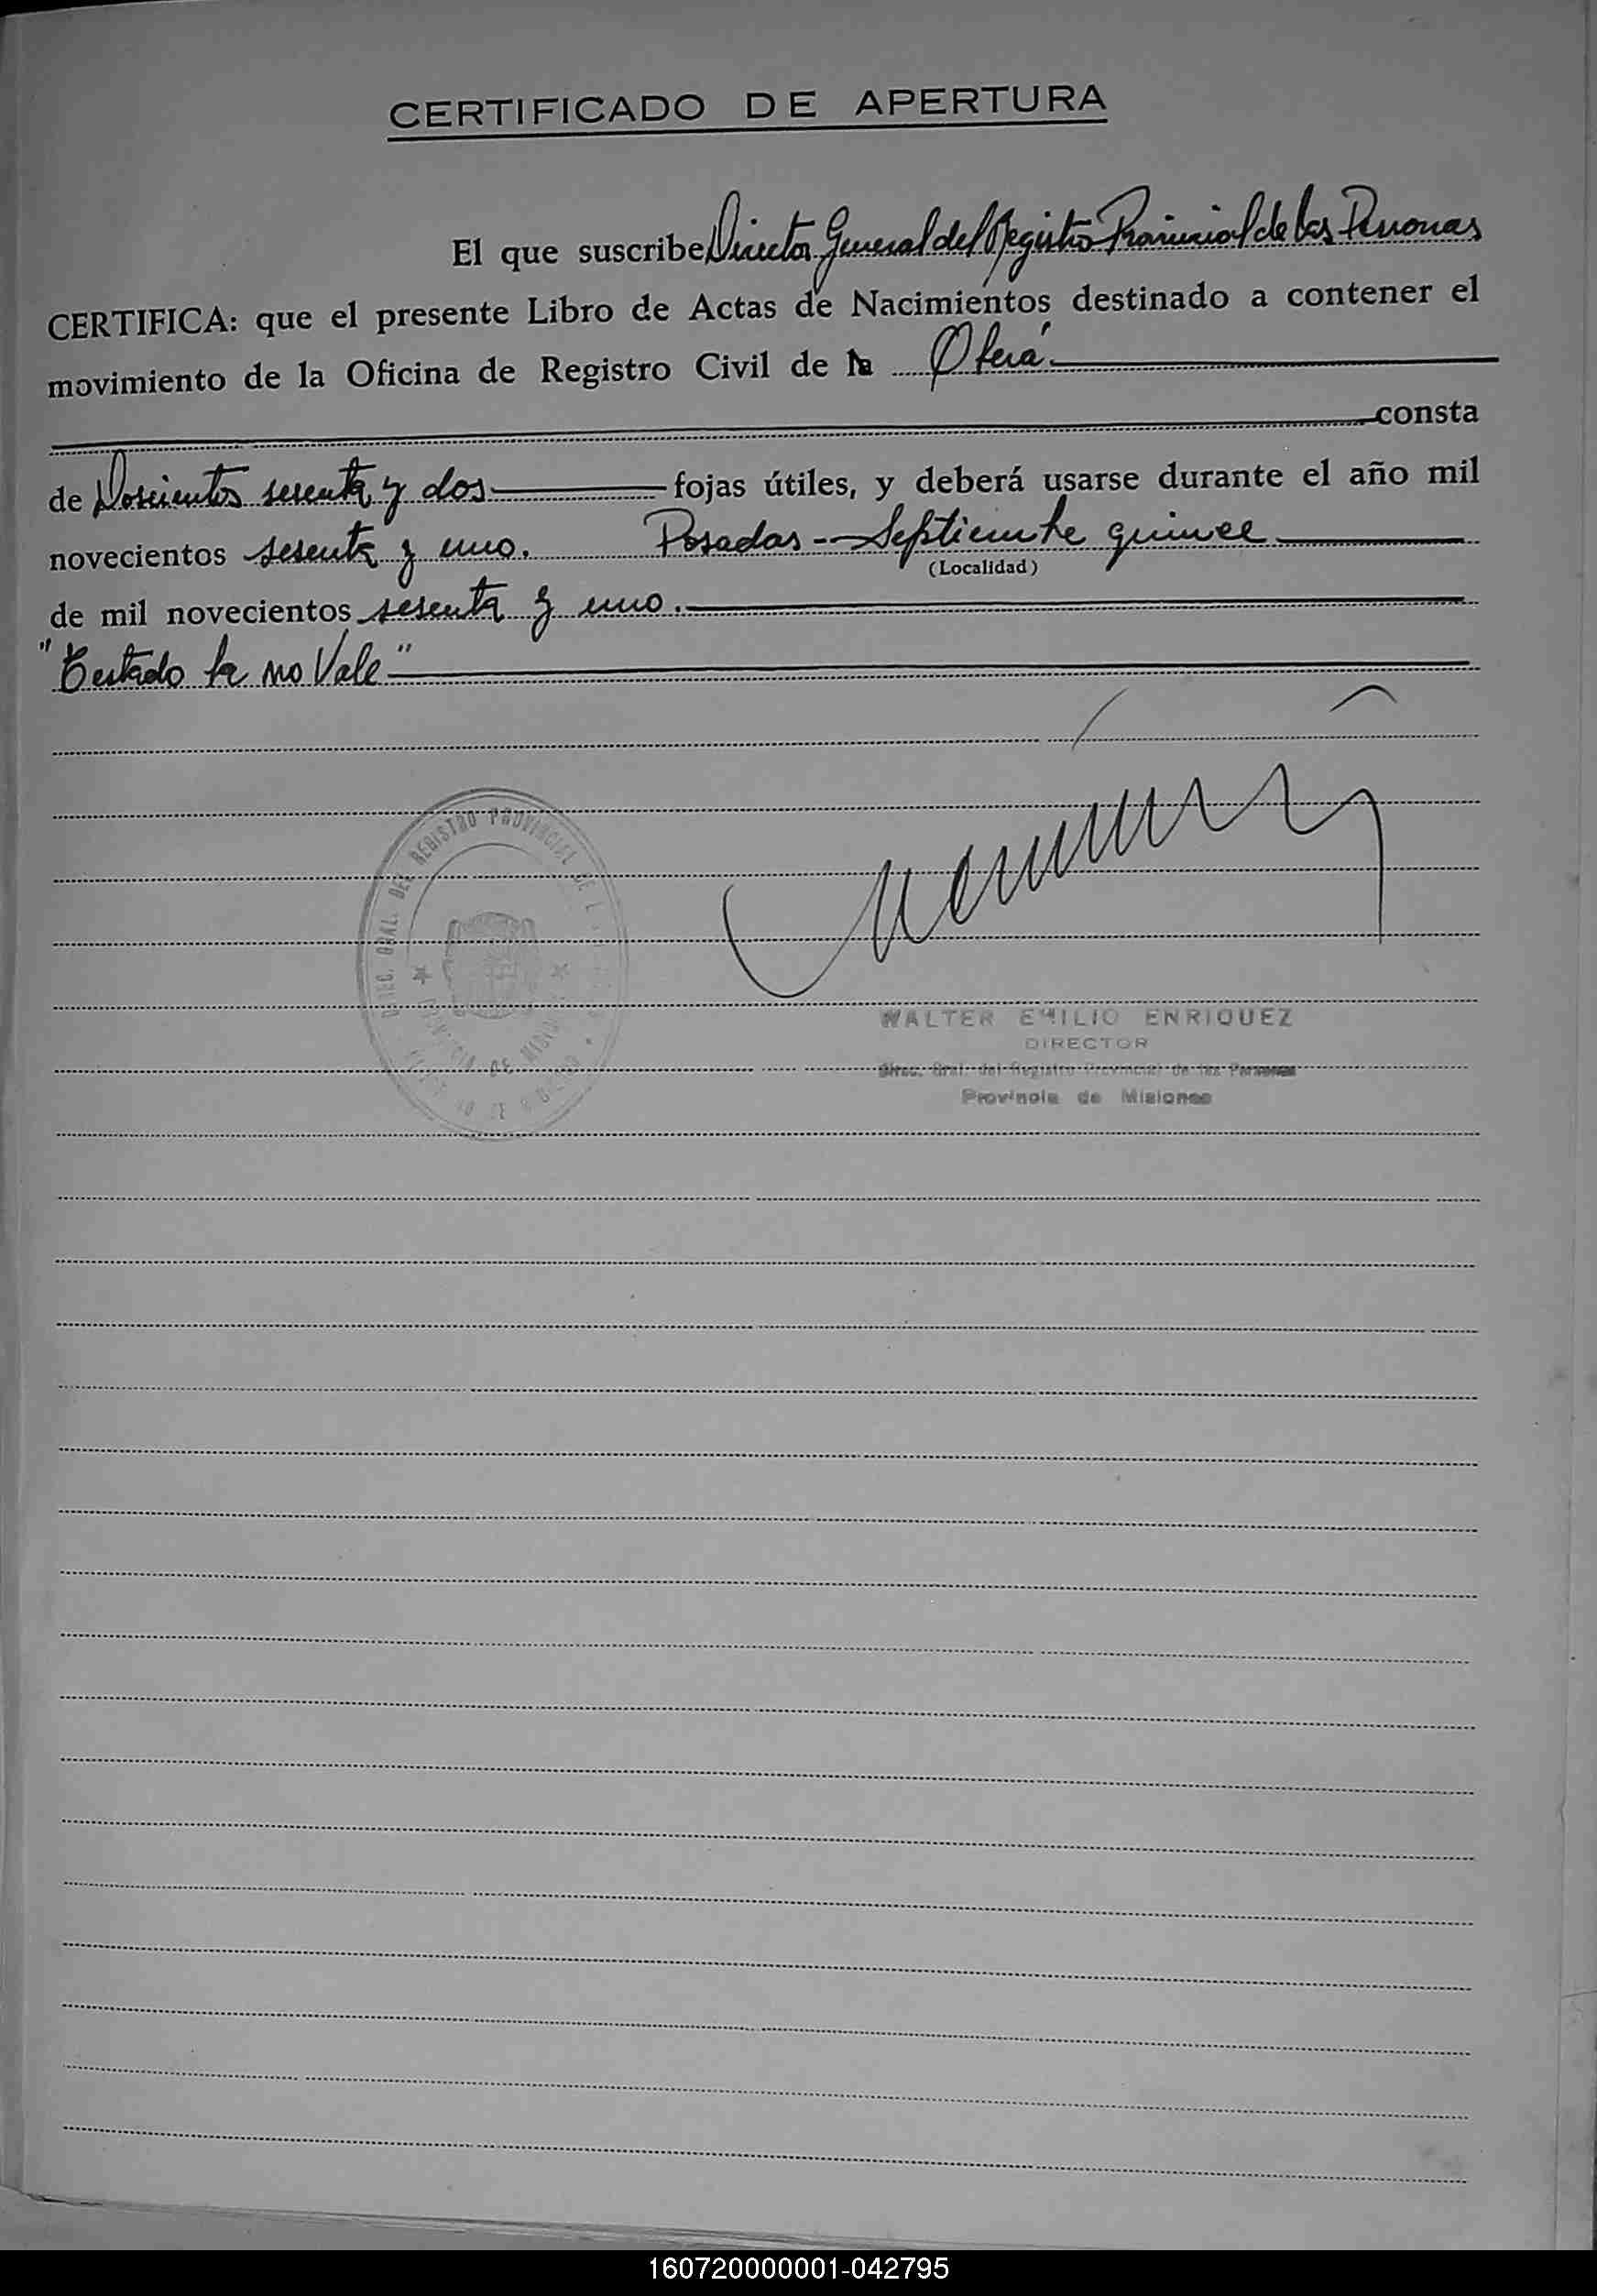 CERTIFICADO DE APERTURA
El que suscribe Director General del Registro Provincial de las Personas
CERTIFICA: que el presente Libro de Actas de Nacimientos destinado a contener el
movimiento de la Oficina de Registro Civil de la Oberá
consta
de Doscientos sesenta y dos fojas útiles, y deberá usarse durante el año mil
novecientos sesenta y uno. Posadas - Septiembre quince
(Localidad)
de mil novecientos sesenta y uno.
"Testado la no Vale"
DIREC. GRAL. DEL REGISTRO PROVINCIAL DE
WALTER EMILIO ENRIQUEZ
DIRECTOR
Direc. Gral. del Registro Provincial de las Personas
Provincia de Misiones
160720000001-042795